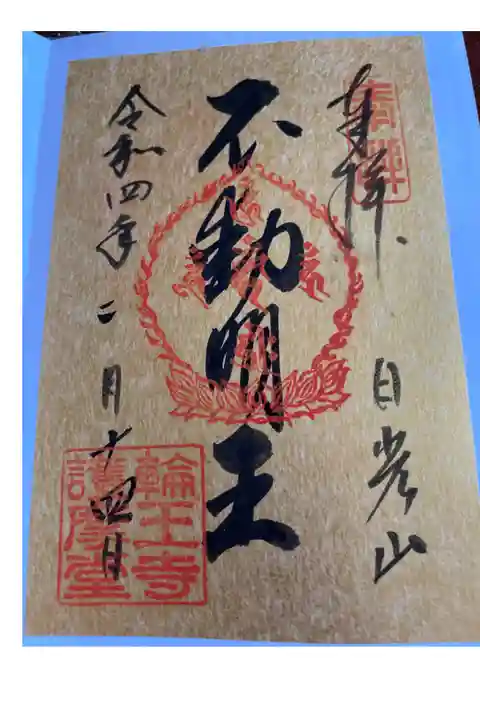 奉拝
奉拝
日光山
不動明王
令和四年二月十四日
輪王寺
護摩堂